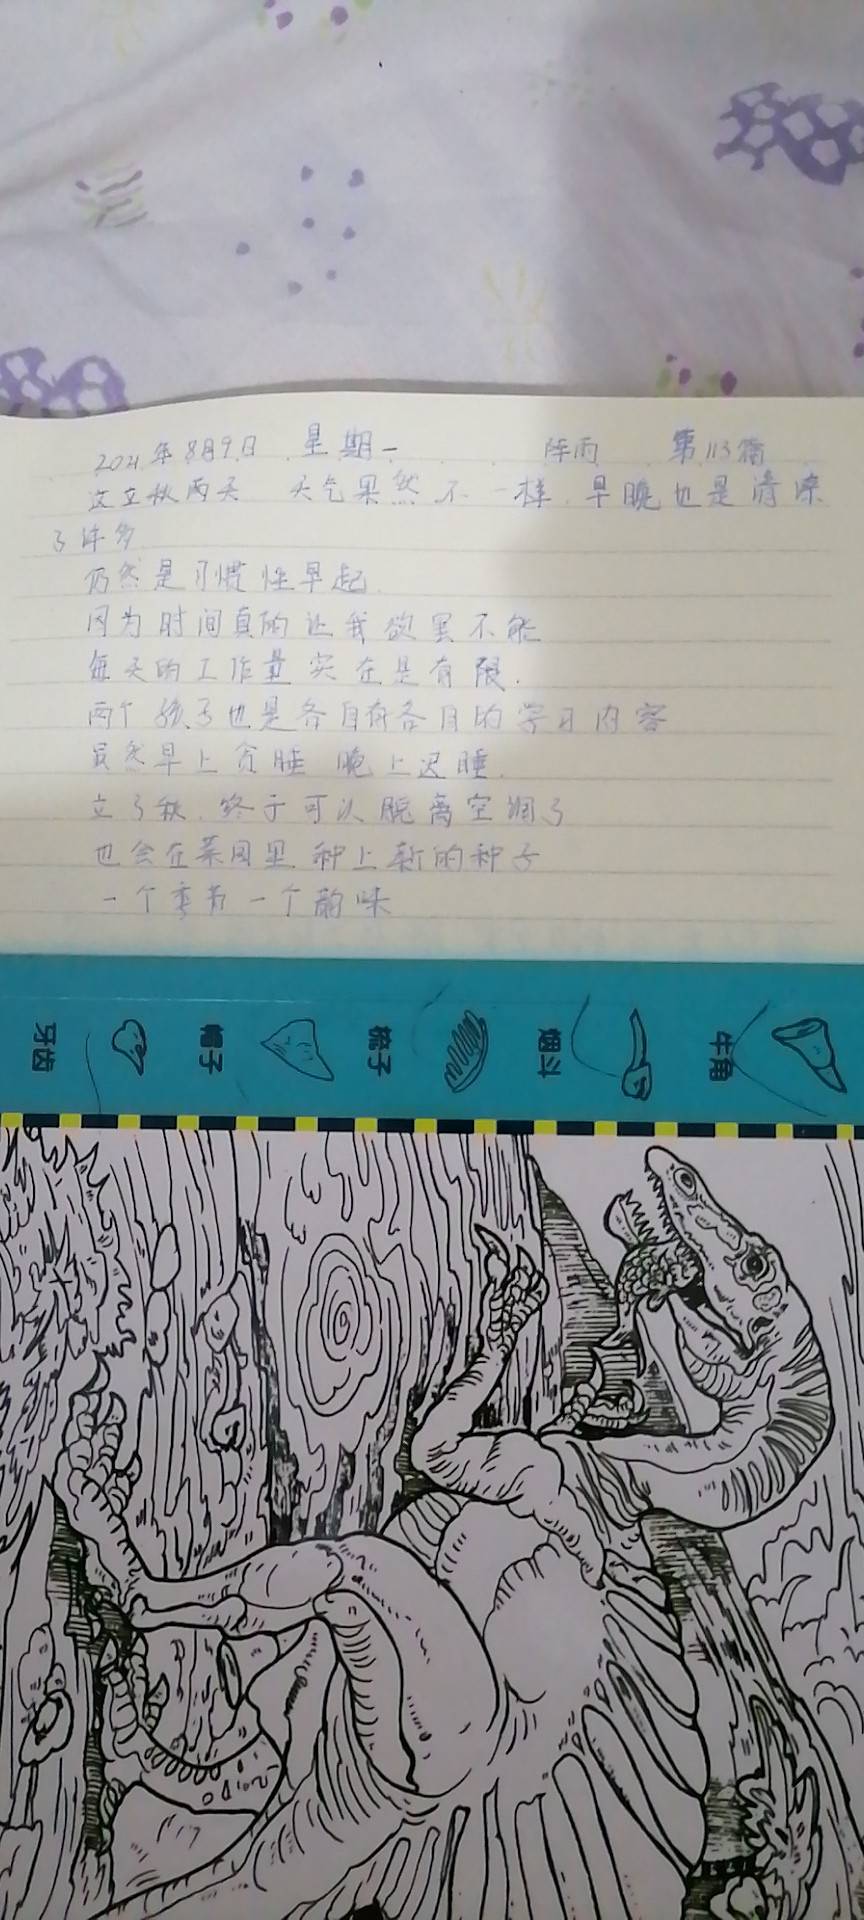 2021年8月9日 星期一 阵雨 第113篇
这立秋两天 天气果然不一样.早晚也是清凉
了许多
仍然是习惯性早起.
因为时间真的让我欲罢不能
每天的工作量实在是有限.
两个孩子也是各自有各自的学习内容
虽然早上贪睡 晚上迟睡.
立了秋.终于可以脱离空调了
也会在菜园里种上新的种子
一个季节一个韵味
牙齿 帽子 梳子 烟斗 牛角